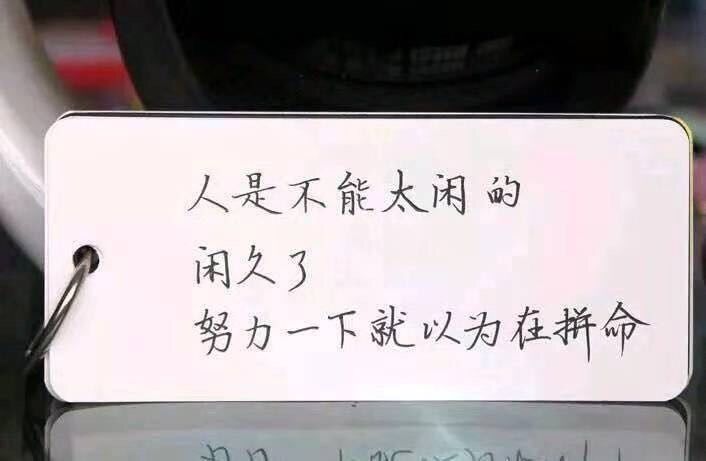 人是不能太闲的
闲久了
努力一下就以为在拼命